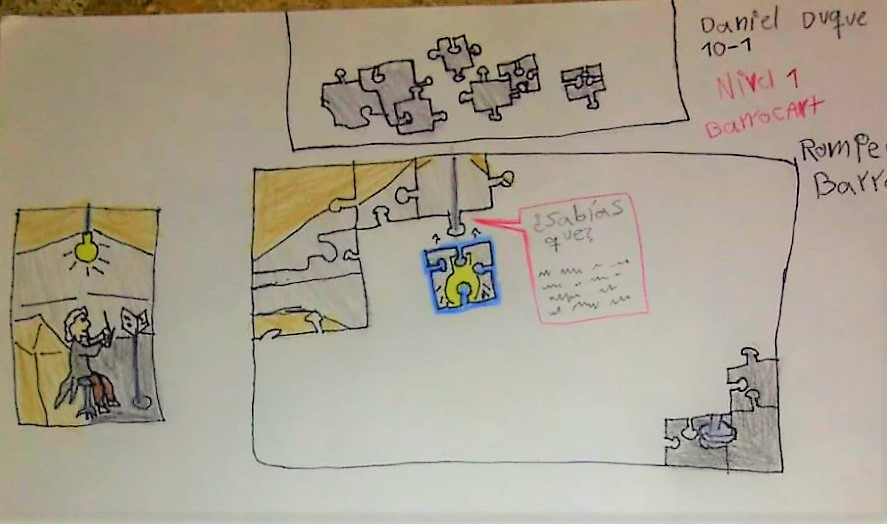 Daniel Duque
10-1
Nivel 1
Barrocart
Rompe
Barr
¿Sabías
que?